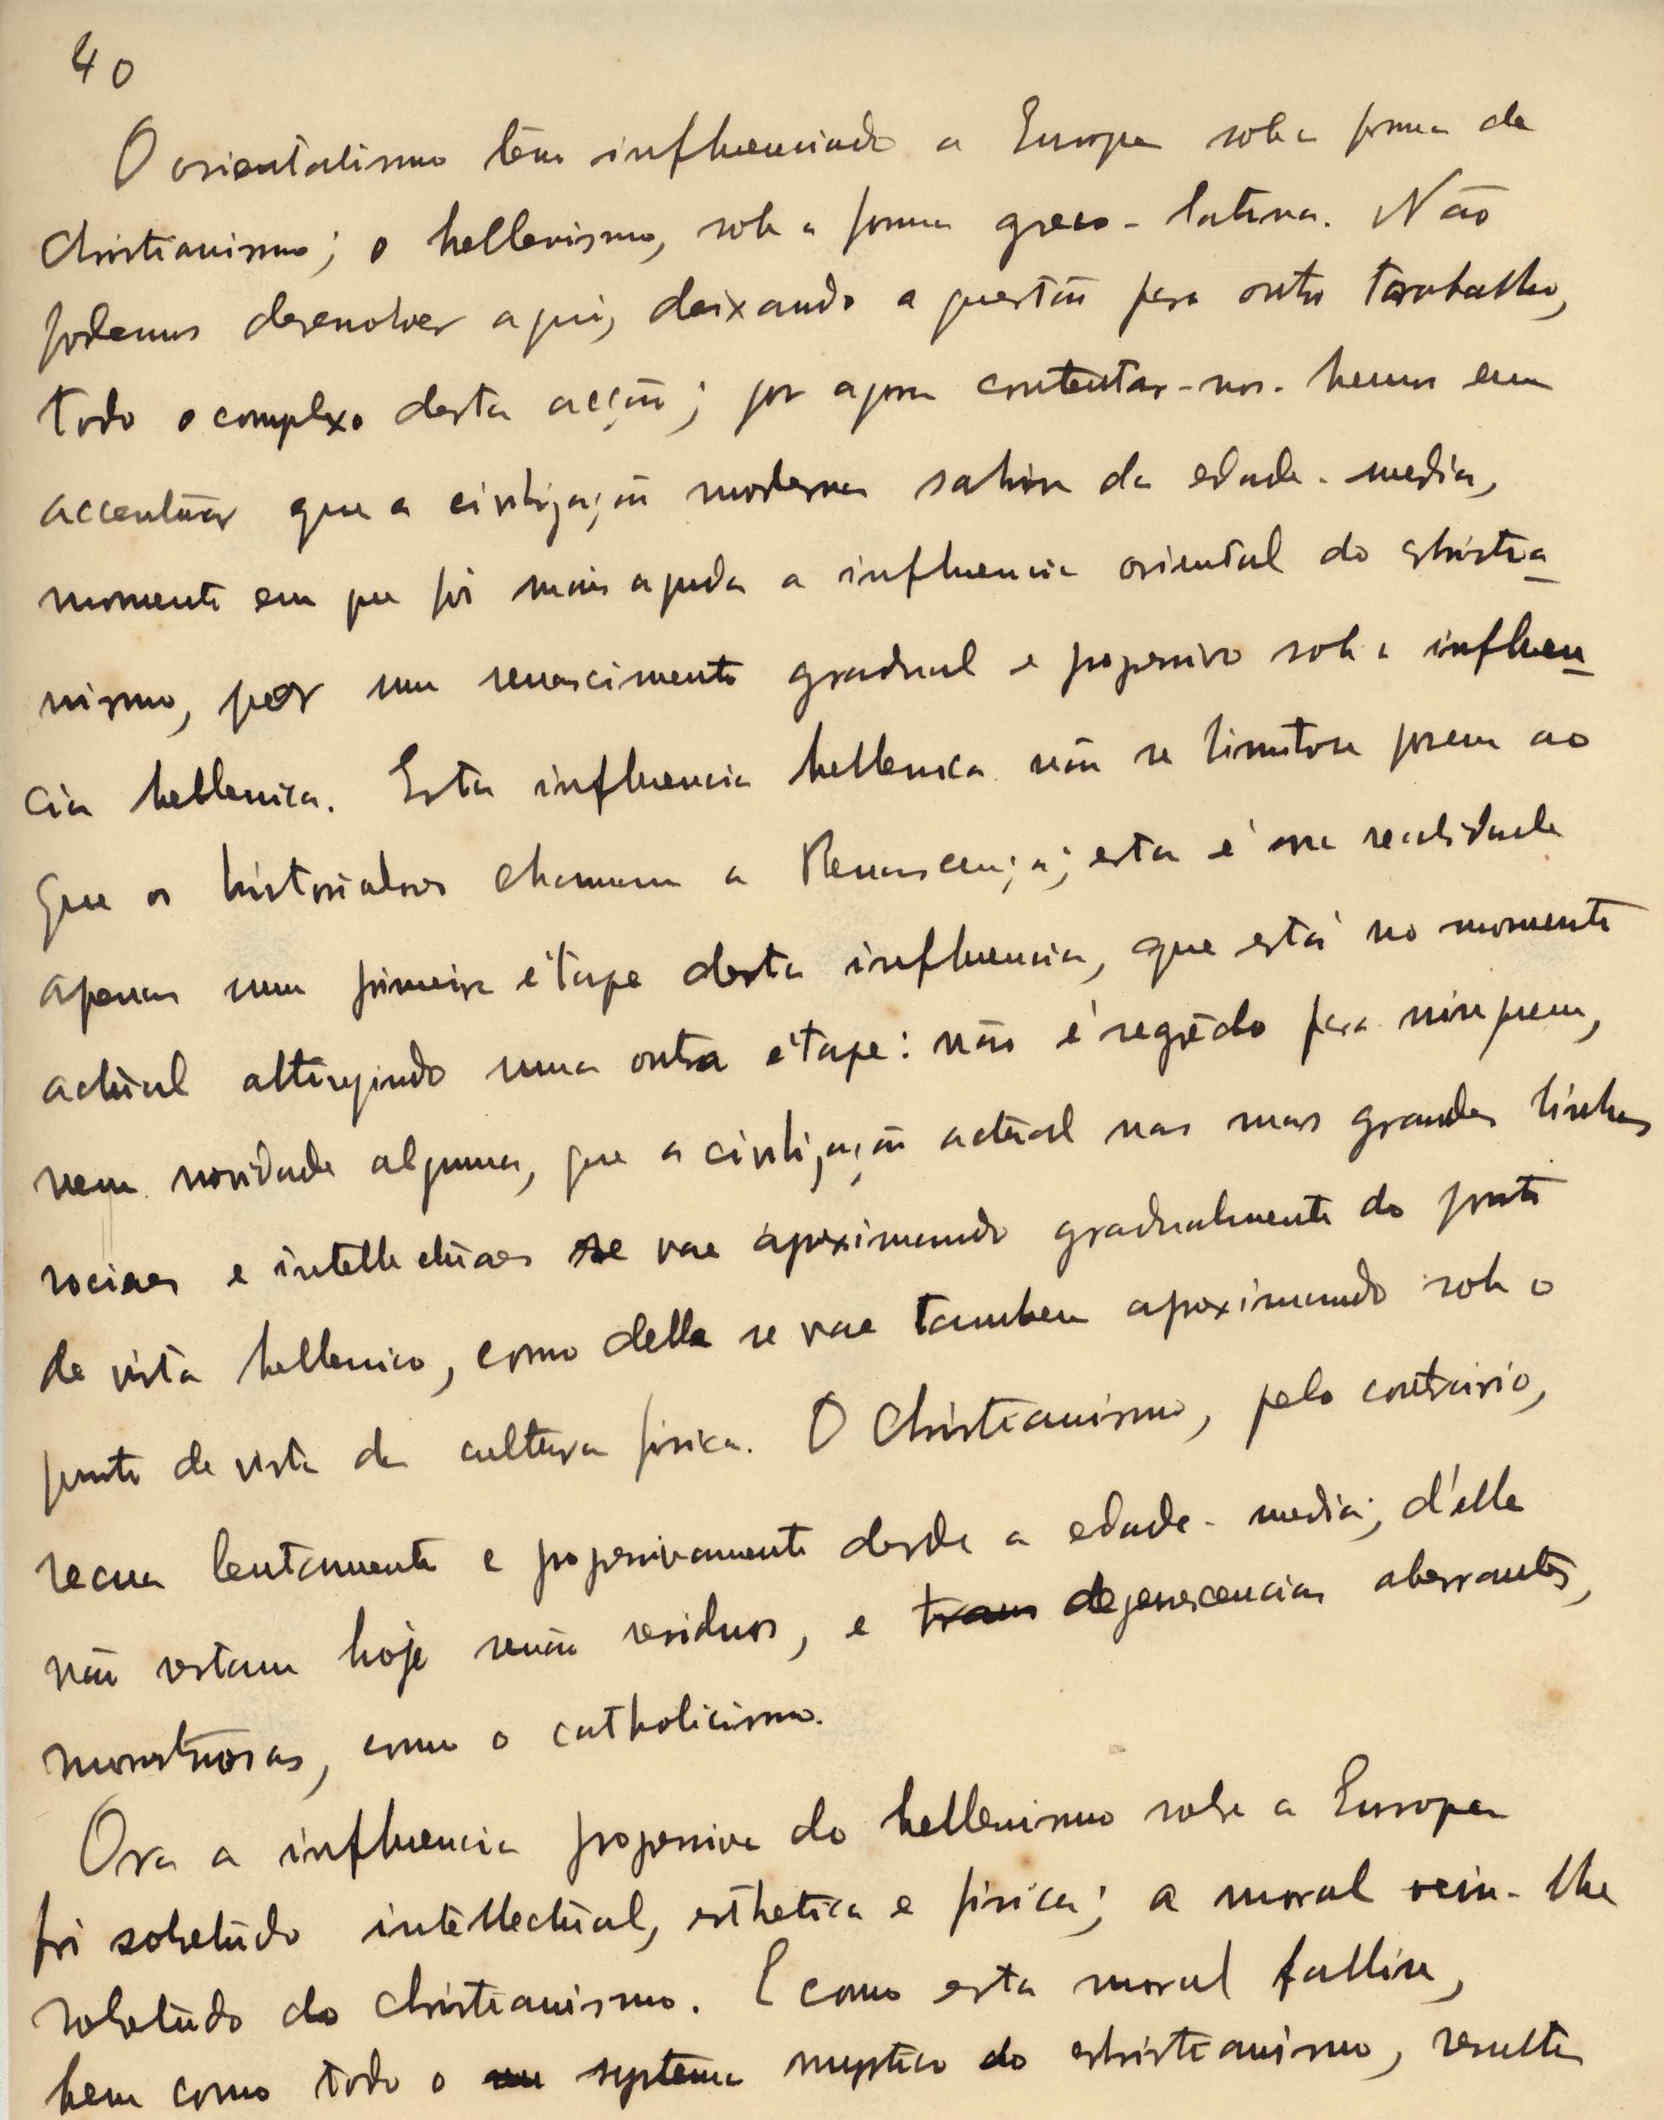 40
O orientalismo tem influenciado a Europa sob a forma de
Christianismo; o hellenismo, sob a forma greco-latina. Não
podemos desenvolver aqui, deixando a questão para outro trabalho,
todo o complexo desta acção; por agora contentar-nos-hemos em
accentuar que a civilização moderna sahiu da edade-media,
momento em que foi mais aguda a influencia oriental do christia
nismo, por um renascimento gradual e progressivo sob a influen
cia hellenica. Esta influencia hellenica não se limitou porem ao
que os historiadores chamam a Renascença; esta é na realidade
apenas uma primeira étape desta influencia, que está no momento
actual attingindo uma outra étape: não é segredo para ninguem,
nem novidade alguma, que a civilização actual nas suas grandes linhas
sociaes e intellectuaes se vae aproximando gradualmente do ponto
de vista hellenico, como delle se vae tambem aproximando sob o
ponto de vista da cultura fisica. O Christianismo, pelo contrario,
recua lentamente e progressivamente desde a edade-media; d'elle
não restam hoje senão residuos, e trans degenerescencias aberrantes,
monstruosas, como o catholicismo.
Ora a influencia progressiva do hellenismo sobre a Europa
foi sobretudo intellectual, esthetica e fisica; a moral veiu-lhe
sobretudo do christianismo. E como esta moral falliu,
bem como todo o systema mystico do christianismo, resulta